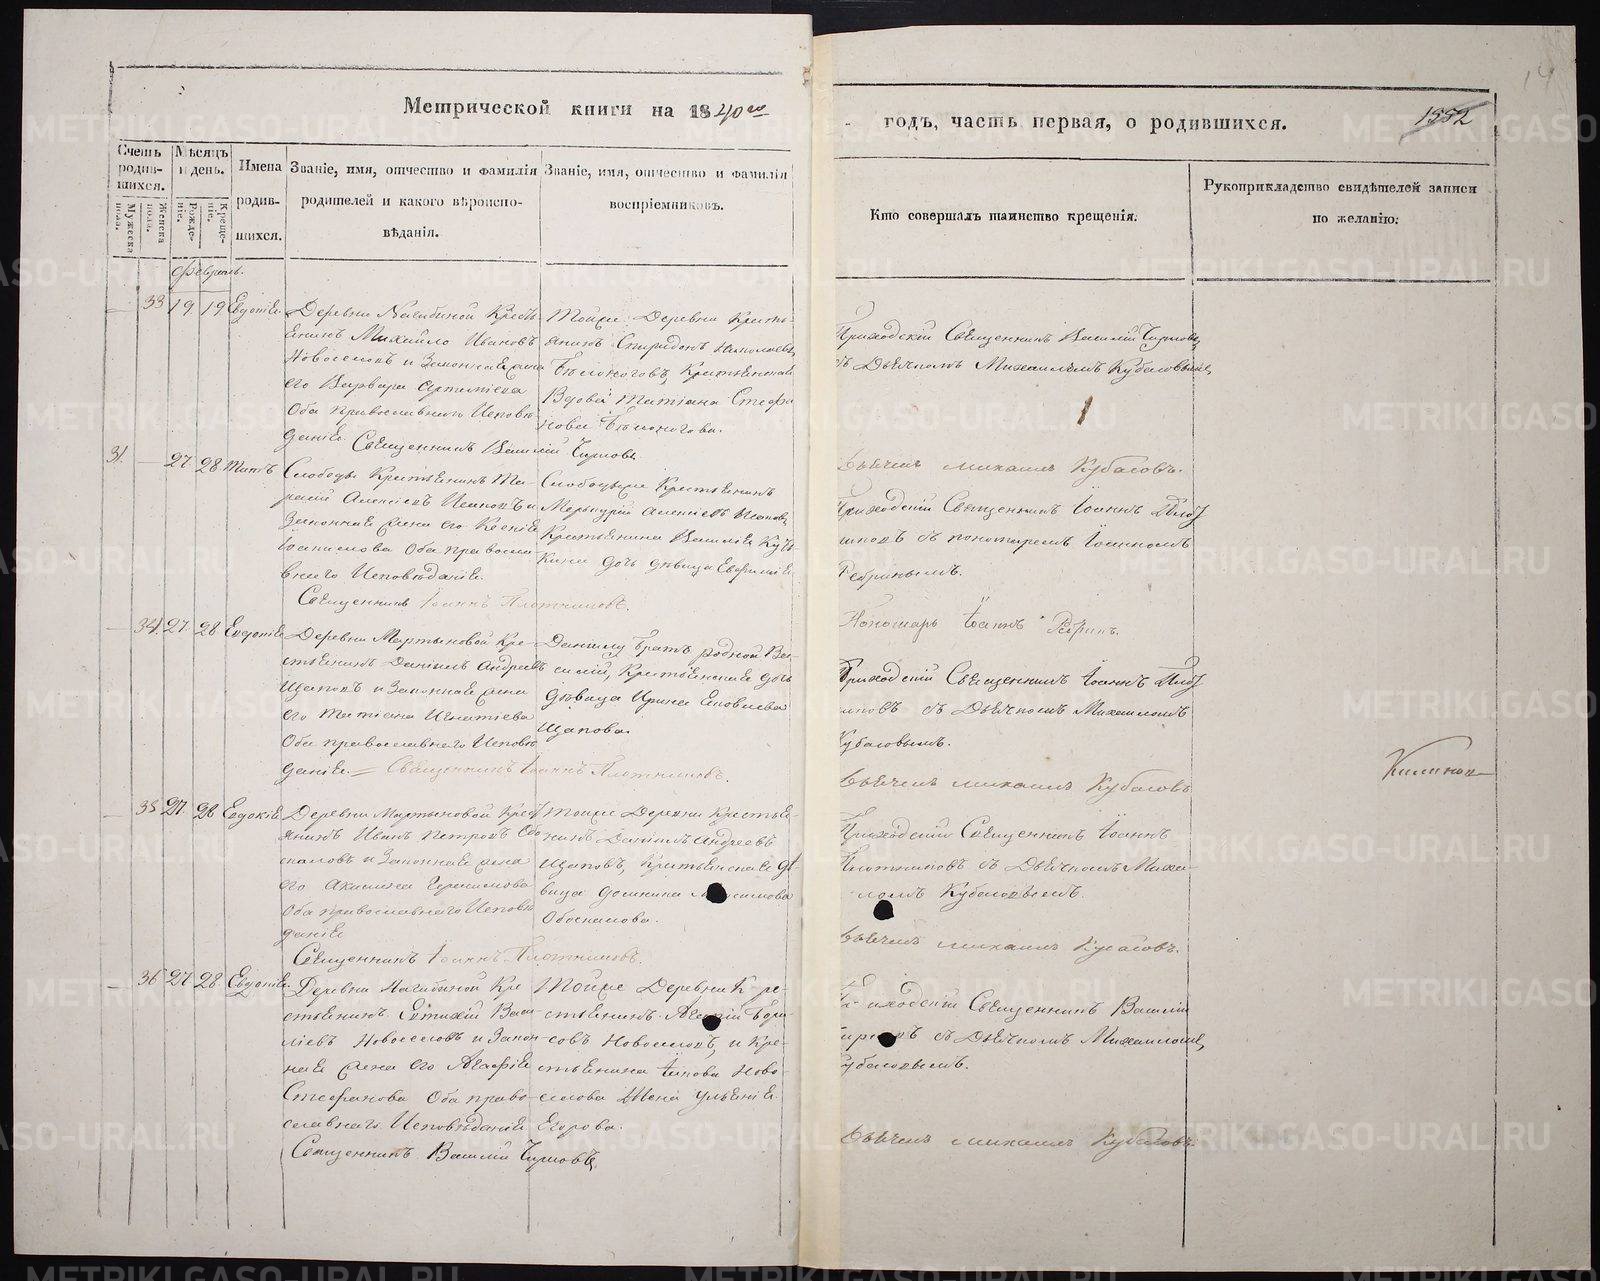 Метрической книги на 1840го
годъ, часть первая, о родившихся.
1552
14
Счетъ родив-шихся.
Мужеска пола.
Женска пола.
Мѣсяцъ и день.
Рожде-нiе.
Креще-нiе.
Имена родив-шихся.
Званіе, имя, отчество и фамилія
родителей и какого вѣроиспо-
вѣданія.
Званіе, имя, отчество и фамилія
воспріемниковъ.
Кто совершалъ таинство крещенія.
Рукоприкладство свидѣтелей записи
по желанію.
Февраль.
33 19 19 Евдокія
Деревни Нагибиной Кресть
янинъ Михайло Ивановъ
Новоселовъ и Законная жена
его Варвара Артемiева
Оба православнаго Исповѣ
данія. Священникъ Василій
Тойже Деревни Кресть-
янинъ Спиридонъ Николаевъ
Бѣлоноговъ, Крестьянская
Вдова Татiана Стефа
нова Бѣлоногова.
Приходскій Священникъ Василій
съ Дьячкомъ Михаиломъ Кубасовымъ
Дьячекъ Михаилъ Кубасовъ.
31. 27 28 Титъ
Слободы Крестьянинъ Та-
расій Алексіевъ и
Законная жена его Ксенія
Оба правосла
внаго Исповѣданія.
Священникъ Іоаннъ Плотниковъ.
Слободскіе Крестьянинъ
Меркурій Алексіевъ
Крестьянина Василія
дочь дѣвица Евфимія
Приходскій Священникъ Іоаннъ Плот
никовъ съ пономаремъ Іоанномъ
Ребринымъ.
Пономарь Іоаннъ Ребринъ.
34 27 28 Евдокія
Деревни Мартыновой Кре-
стьянинъ Даніилъ Андреевъ
Щаповъ и Законная жена
его Татiана Игнатiева
Оба православнаго Исповѣ
данія. Священникъ Іоаннъ Плотниковъ.
Даніилу братъ родной Ва-
силій, Крестьянская дочь
дѣвица Ирина Іаковлева
Щапова.
Приходскій Священникъ Іоаннъ Плот
никовъ съ Дьячкомъ Михаиломъ
Кубасовымъ.
Дьячекъ Михаилъ Кубасовъ
35 27 28 Евдокія
Деревни Мартыновой Крест
янинъ Иванъ Петровъ Обо
скаловъ и Законная жена
его Акилина Герасимова
Оба православнаго Исповѣ
данія
Священникъ Іоаннъ Плотниковъ.
Тойже Деревни Крестья-
нинъ Даніилъ Андреевъ
Щаповъ, Крестьянская дѣ
вица Домнина
Обоскалова.
Приходскій Священникъ Іоаннъ
Плотниковъ съ Дьячкомъ Михаи-
ломъ Кубасовымъ.
Дьячекъ Михаилъ Кубасовъ.
36 27 28 Евдокія
Деревни Нагибиной Кре
стьянинъ Евтихій Васи-
ліевъ Новоселовъ и Закон
ная жена его Агафія
Стефанова Оба право-
славнаго Исповѣданія
Священникъ Василій
Тойже Деревни Кре-
стьянинъ
Новоселовъ, и Кре-
стьянина Іакова Ново-
селова Жена Ульянія
Егорова.
Приходскій Священникъ Василій
съ Дьячкомъ Михаиломъ
Кубасовымъ.
Дьячекъ Михаилъ Кубасовъ.
METRIKI.GASO-URAL.RU